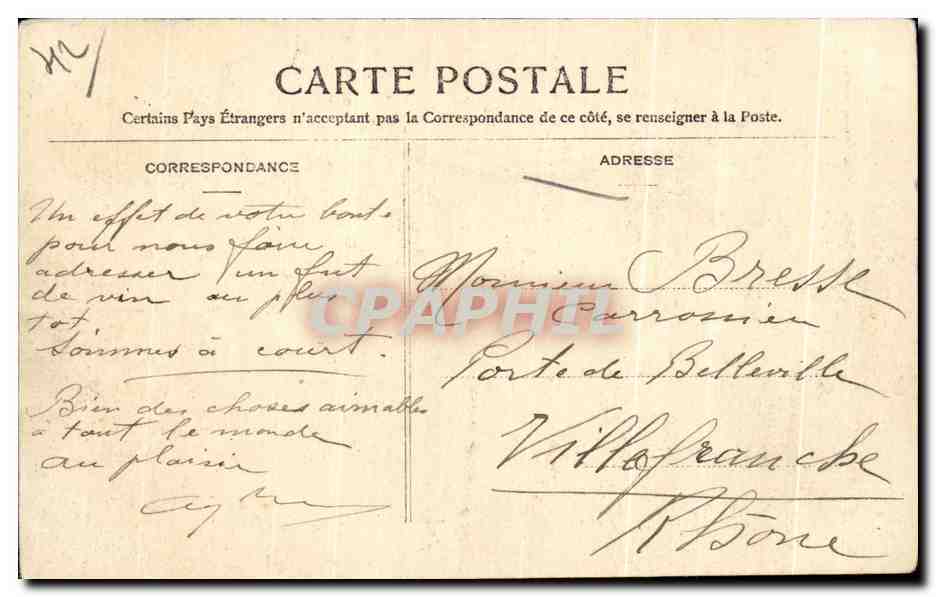 42
CARTE POSTALE
Certains Pays Étrangers n'acceptant pas la Correspondance de ce côté, se renseigner à la Poste.
CORRESPONDANCE
Un effet de votre bonté
pour nous faire
adresser un fut
de vin au plus
tot
Sommes à court.
Bien des choses aimables
à tout le monde
au plaisir
ADRESSE
Monsieur Bresse
Carrossier
Porte de Belleville
Villefranche
Rhône
CPAPHIL